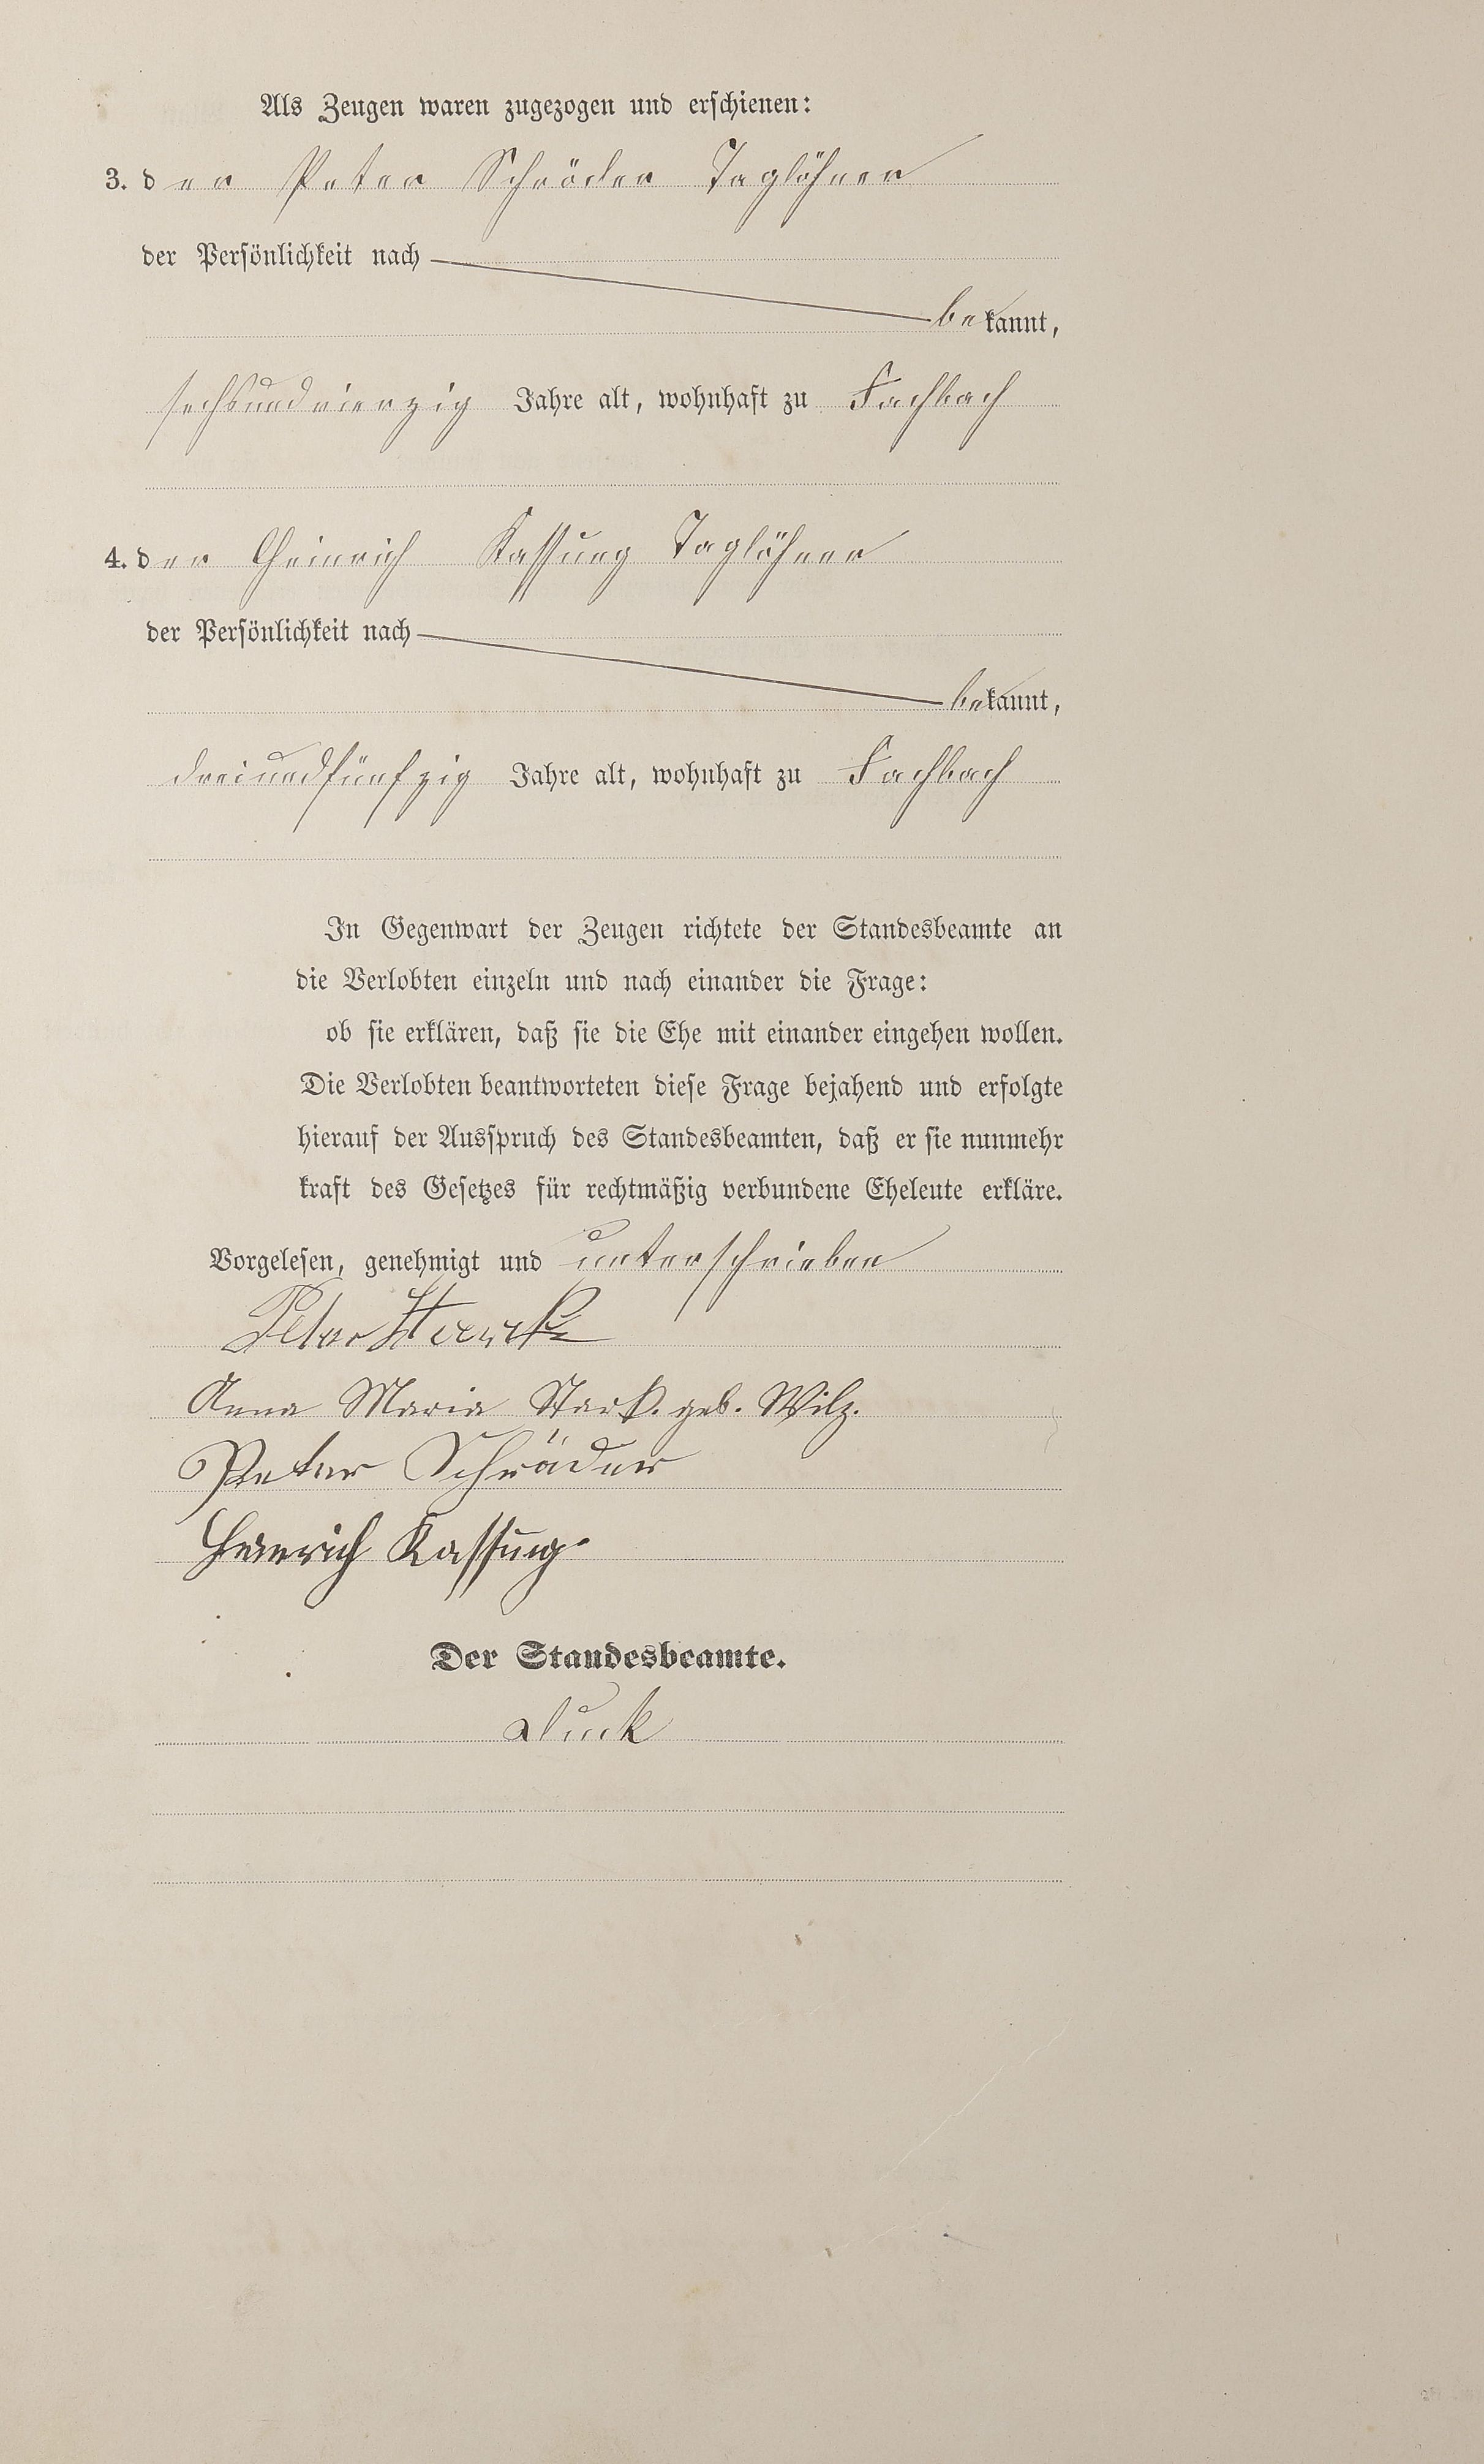 Als Zeugen waren zugezogen und erschienen:
3. der Peter Schröder Taglöhner
der Persönlichkeit nach
bekannt,
sechsundvierzig Jahre alt, wohnhaft zu Fachbach
4. der Heinrich Kassung Taglöhner
der Persönlichkeit nach
bekannt,
dreiundfünfzig Jahre alt, wohnhaft zu Fachbach
In Gegenwart der Zeugen richtete der Standesbeamte an
die Verlobten einzeln und nach einander die Frage:
ob sie erklären, daß sie die Ehe mit einander eingehen wollen.
Die Verlobten beantworteten diese Frage bejahend und erfolgte
hierauf der Ausspruch des Standesbeamten, daß er sie nunmehr
kraft des Gesetzes für rechtmäßig verbundene Eheleute erkläre.
Vorgelesen, genehmigt und unterschrieben
Peter
Anna Maria Stark. geb. Wilz.
Peter Schröder
Heinrich Kassung.
Der Standesbeamte.